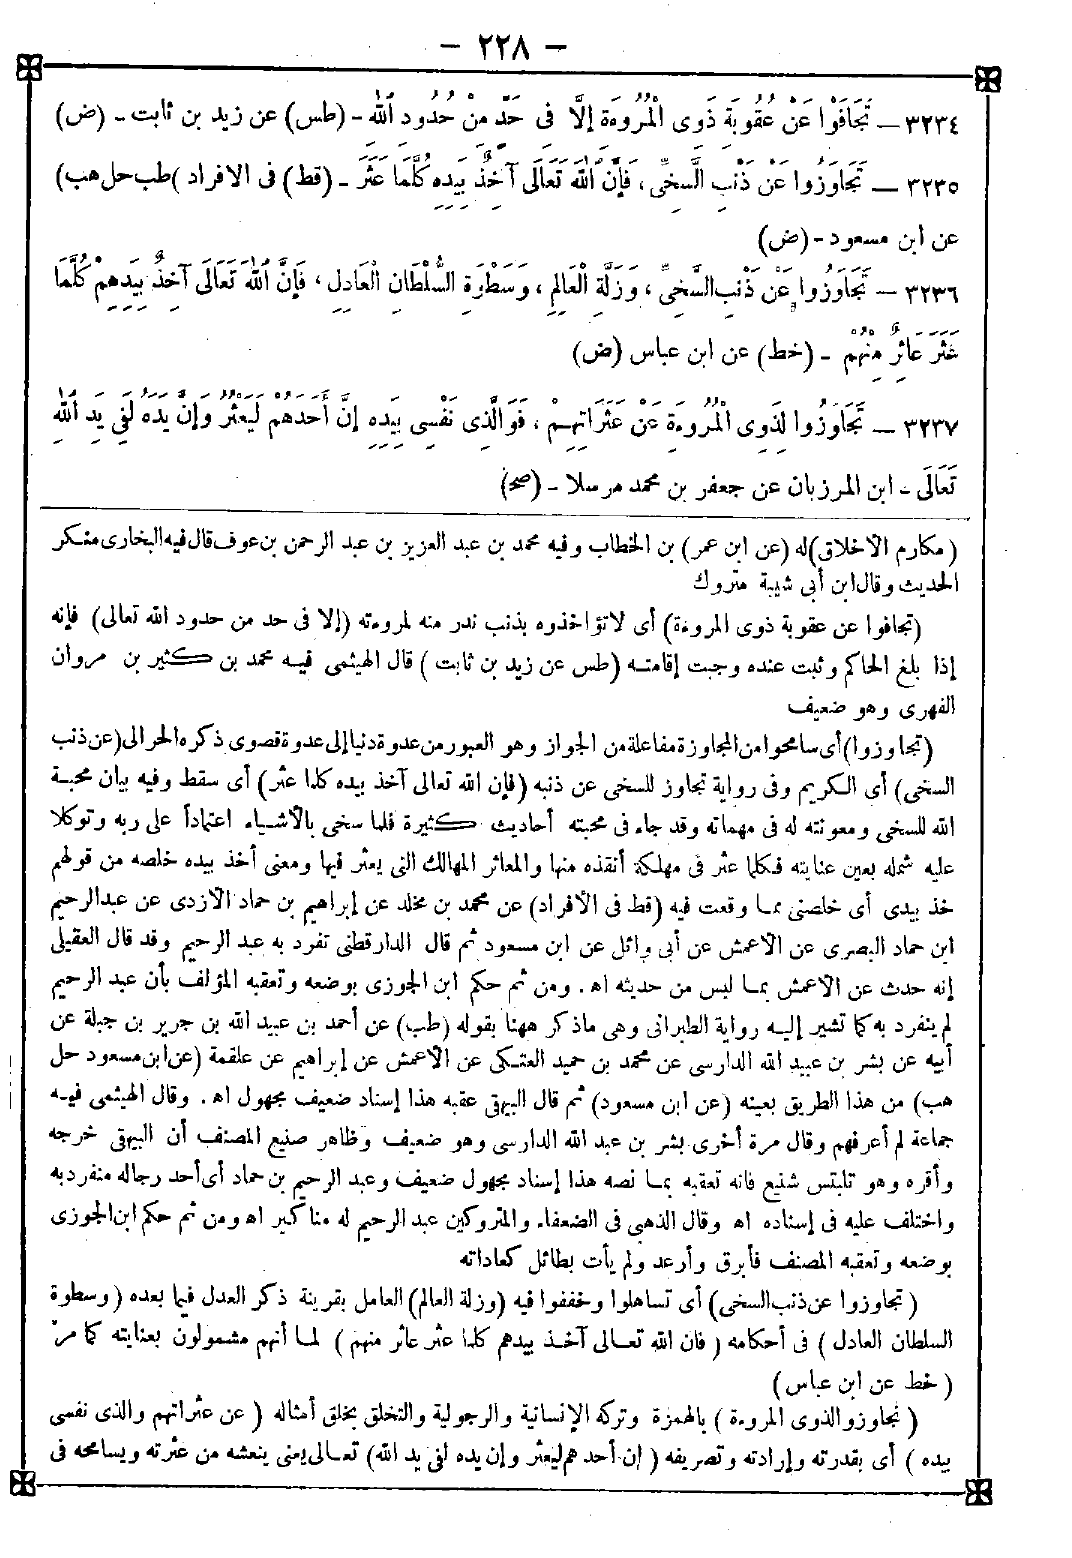 - ٢٢٨ -
٣٢٣٤ - تَجَافَوْا عَنْ عُقُوبَةِ ذَوِى الْمُرُوءَةِ إِلَّا فِى حَدٍّ مِنْ حُدُودِ اللهِ - (طس) عن زيد بن ثابت - (ض)
٣٢٣٥ - تَجَاوَزُوا عَنْ ذَنْبِ السَّخِىِّ، فَإِنَّ اللهَ تَعَالَى آخِذٌ بِيَدِهِ كُلَّمَا عَثَرَ - (قط) فى الافراد (طب حل هب)
عن ابن مسعود - (ض)
٣٢٣٦ - تَجَاوَزُوا عَنْ ذَنْبِ السَّخِىِّ، وَزَلَّةِ الْعَالِمِ، وَسَطْوَةِ السُّلْطَانِ الْعَادِلِ، فَإِنَّ اللهَ تَعَالَى آخِذٌ بِيَدِهِمْ كُلَّمَا
عَثَرَ عَاثِرٌ مِنْهُمْ - (خط) عن ابن عباس (ض)
٣٢٣٧ - تَجَاوَزُوا لِذَوِى الْمُرُوءَةِ عَنْ عَثَرَاتِهِمْ، فَوَالَّذِى نَفْسِى بِيَدِهِ إِنَّ أَحَدَهُمْ لَيَعْثُرُ وَإِنَّ يَدَهُ لَفِى يَدِ اللهِ
تَعَالَى - ابن المرزبان عن جعفر بن محمد مرسلا - (صح)
(مكارم الأخلاق) له (عن ابن عمر) بن الخطاب وفيه محمد بن عبد العزيز بن عبد الرحمن بن عوف قال فيه البخارى منكر
الحديث وقال ابن أبى شيبة متروك
(تجافوا عن عقوبة ذوى المروءة) أى لا تؤاخذوه بذنب ندر منه لمروءته (إلا فى حد من حدود الله تعالى) فإنه
إذا بلغ الحاكم وثبت عنده وجبت إقامته (طس عن زيد بن ثابت) قال الهيثمى فيه محمد بن كثير بن مروان
الفهرى وهو ضعيف
(تجاوزوا) أى سامحوا من المجاوزة مفاعلة من الجواز وهو العبور من عدوة دنيا إلى عدوة قصوى ذكره الحرالى (عن ذنب
السخى) أى الكريم وفى رواية تجاوز للسخى عن ذنبه (فإن الله تعالى آخذ بيده كلما عثر) أى سقط وفيه بيان محبة
الله للسخى ومعونته له فى مهماته وقد جاء فى محبته أحاديث كثيرة فلما سخى بالأشياء اعتمادا على ربه وتوكلا
عليه شمله بعين عنايته فكلما عثر فى مهلكة أنقذه منها والمعاثر المهالك التى يعثر فيها ومعنى أخذ بيده خلصه من قولهم
خذ بيدى أى خلصنى مما وقعت فيه (قط فى الأفراد) عن محمد بن مخلد عن إبراهيم بن حماد الأزدى عن عبد الرحيم
ابن حماد البصرى عن الأعمش عن أبى وائل عن ابن مسعود ثم قال الدارقطنى تفرد به عبد الرحيم وقد قال العقيلى
إنه حدث عن الأعمش بما ليس من حديثه اهـ. ومن ثم حكم ابن الجوزى بوضعه وتعقبه المؤلف بأن عبد الرحيم
لم ينفرد به كما تشير إليه رواية الطبرانى وهى ما ذكر ههنا بقوله (طب) عن أحمد بن عبيد الله بن جرير بن جبلة عن
أبيه عن بشر بن عبيد الله الدارسى عن محمد بن حميد العتكى عن الأعمش عن إبراهيم عن علقمة (عن ابن مسعود حل
هب) من هذا الطريق بعينه (عن ابن مسعود) ثم قال البيهقى عقبه هذا إسناد ضعيف مجهول اهـ. وقال الهيثمى فيه
جماعة لم أعرفهم وقال مرة أخرى بشر بن عبد الله الدارسى وهو ضعيف وظاهر صنيع المصنف أن البيهقى خرجه
وأقره وهو تلبتس شنيع فانه تعقبه بما نصه هذا إسناد مجهول ضعيف وعبد الرحيم بن حماد أى أحد رجاله منفرد به
واختلف عليه فى إسناده اهـ وقال الذهبى فى الضعفاء والمتروكين عبد الرحيم له مناكير اهـ ومن ثم حكم ابن الجوزى
بوضعه وتعقبه المصنف فأبرق وأرعد ولم يأت بطائل كعاداته
(تجاوزوا عن ذنب السخى) أى تساهلوا وخففوا فيه (وزلة العالم) العامل بقرينة ذكر العدل فيما بعده (وسطوة
السلطان العادل) فى أحكامه (فان الله تعالى آخذ بيدهم كلما عثر عاثر منهم) لما أنهم مشمولون بعنايته كما مرّ
(خط عن ابن عباس)
(تجاوزوالذوى المروءة) بالهمزة وتركه الإنسانية والرجولية والتخلق بخلق أمثاله (عن عثراتهم والذى نفسى
بيده) أى بقدرته وإرادته وتصريفه (إن أحدهم ليعثر وإن يده لفى يد الله) تعالى يعنى ينعشه من عثرته ويسامحه فى